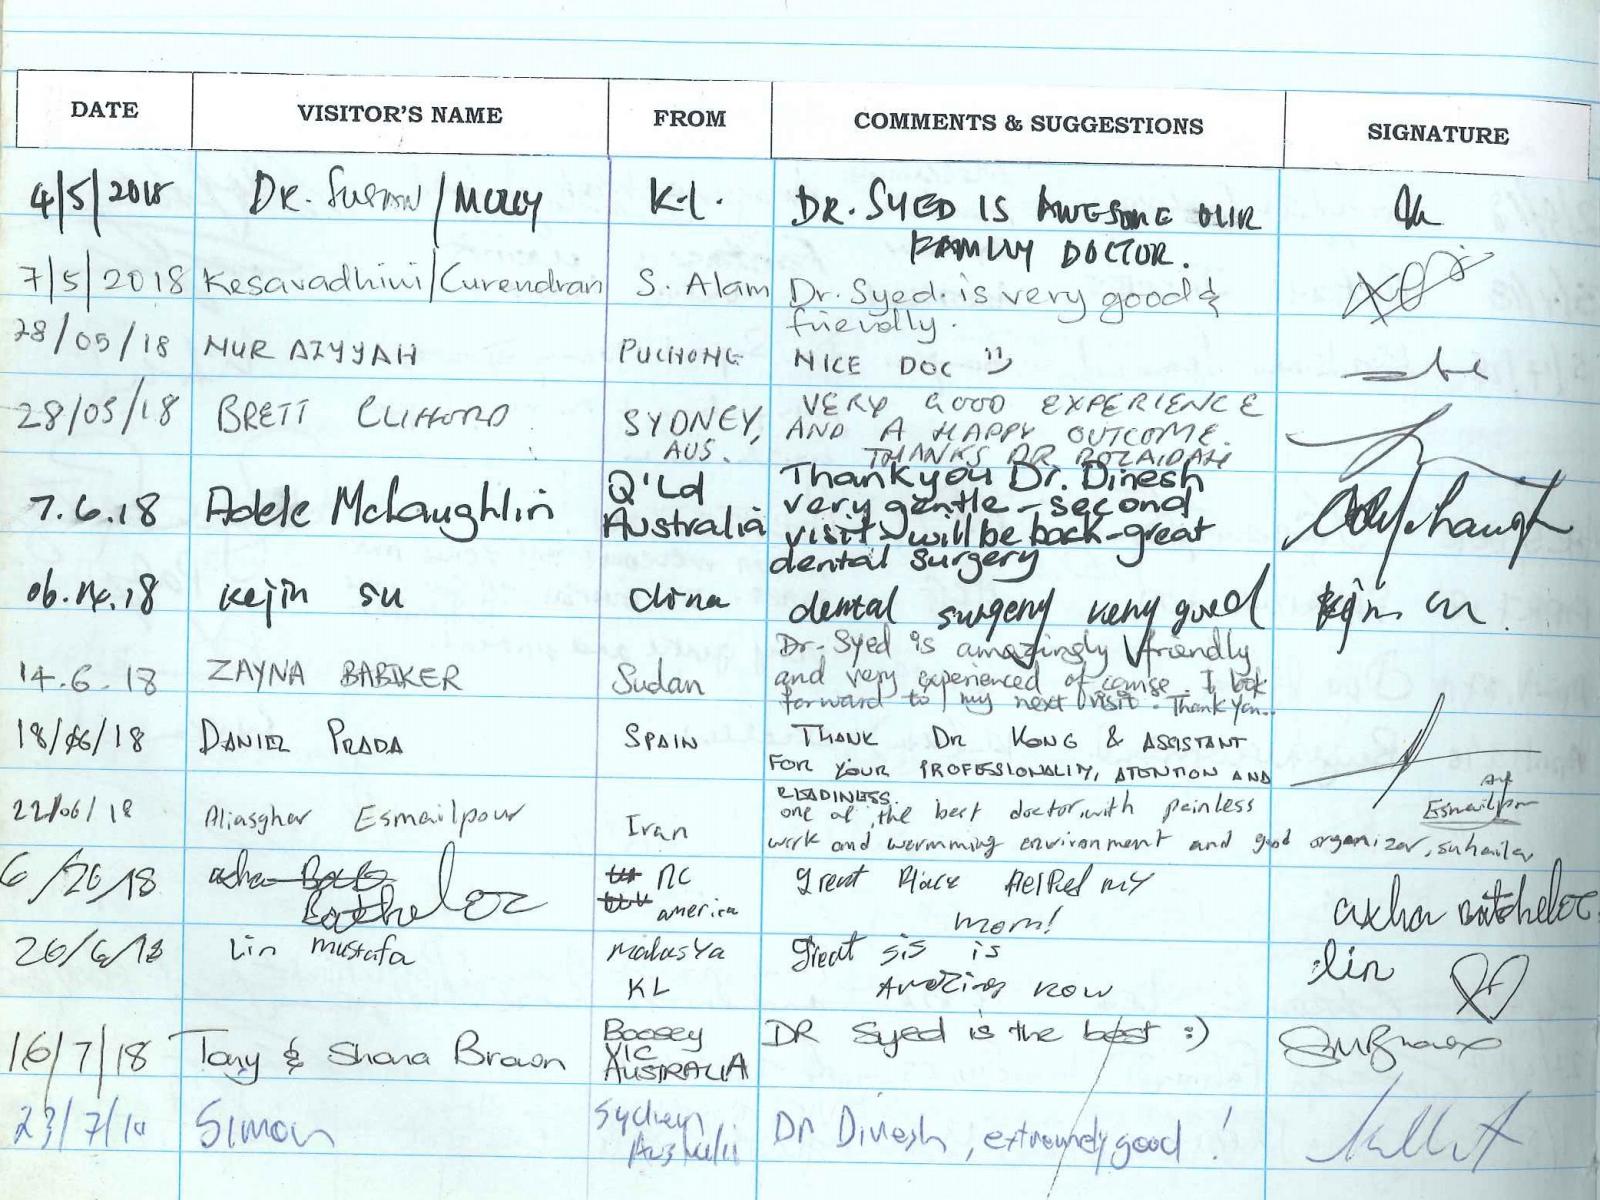 DATE VISITOR'S NAME FROM COMMENTS & SUGGESTIONS SIGNATURE
4/5/2018 DR. SUSAN/MOLLY K.L. DR. SYED IS AWESOME OUR
FAMILY DOCTOR.
7/5/2018 Kesavadhini/Curendran S. Alam Dr. Syed is very good &
friendly.
28/05/18 NUR AZYYAH PUCHONG NICE DOC
28/05/18 BRETT CLIFFORD SYDNEY, AUS. VERY GOOD EXPERIENCE
AND A HAPPY OUTCOME.
THANKS DR ROZAIDAH
7.6.18 Adele McLaughlin Q'Ld Australia Thank you Dr. Dinesh
very gentle - second
visit - will be back - great
dental surgery
06.14.18 Kejin su china dental surgery very good
14.6.18 ZAYNA BABIKER Sudan Dr. Syed is amazingly friendly
and very experienced of course. I look
forward to my next visit. Thank you..
18/06/18 DANIEL PRADA SPAIN THANK DR KONG & ASSISTANT
FOR YOUR PROFESSIONALITY, ATENTION AND
READINESS.
22/06/18 Aliasghar Esmailpour Iran one of the best doctor, with painless Esmailpour
work and warmming environment and good organizer, suhaila
6/26/18 Batchelor NC america Great Place Helped my
mom! axha batchelor
26/6/18 Lin mustafa malasya KL Great sis is lin
Amazing now
16/7/18 Tony & Shana Brown Boosey VIC AUSTRALIA DR Syed is the best :)
23/7/18 Simon Sydney Australia Dr Dinesh, extremely good!